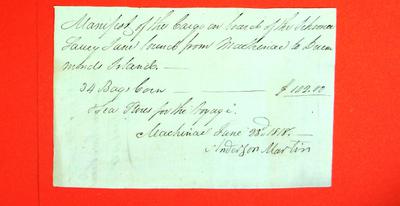 Manifest of the Cargo on board of the Schooner
Jane bound from Mackinac to Drum
monds Island. —
34 Bags Corn — $ 102.00
Sea Stores for the Voyage.
Mackinac June 23d 1818. —
Anderson Martin